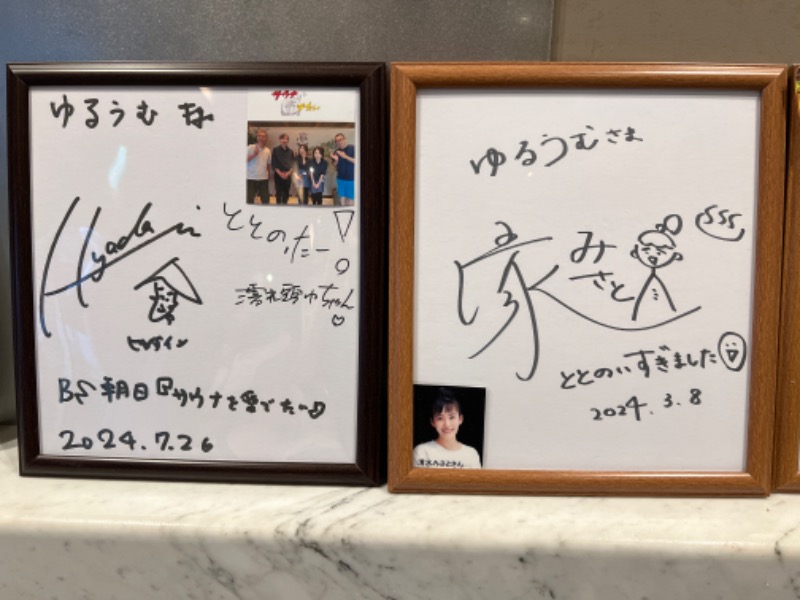 ゆるうむ さま
Hyadain
ととのったー!
濡れ頭巾ちゃん
ヒャダイン
BS朝日『サウナを愛でたい』
2024.7.26
ゆるうむさま
みさと
ととのいすぎました
2024.3.8
清水みさとさん